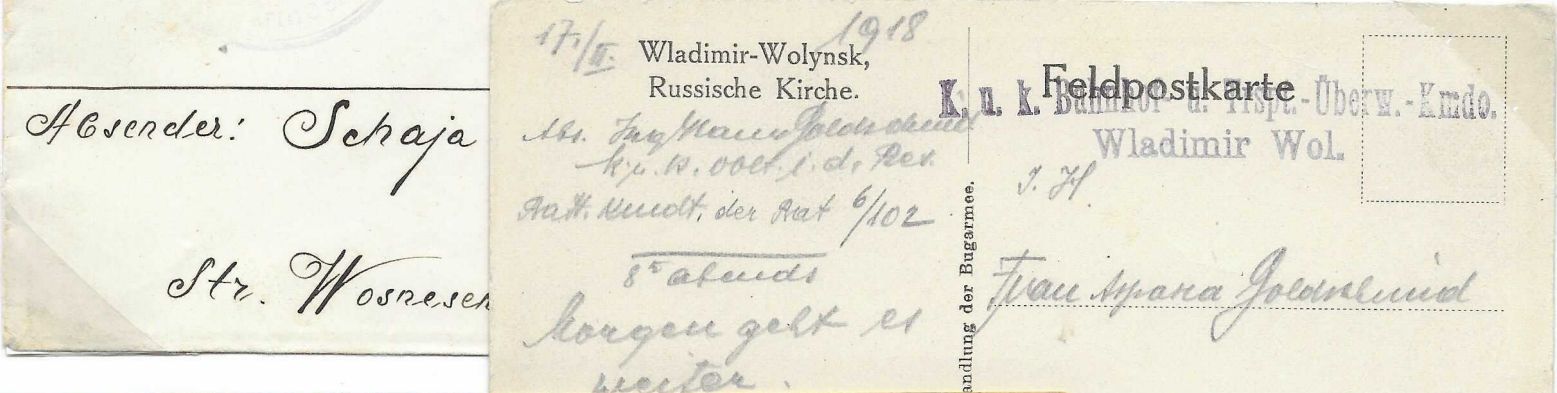 Absender: Schaja
Str. Wosnesen
17./II. 1918
Wladimir-Wolynsk,
Russische Kirche.
Abs. Ing Hans Goldschmid
k. u. k. Oblt. i. d. Res.
Batt. Kmdt. der Bat 6/102
8⁵ abends
Morgen geht es
weiter.
andlung der Bugarmee.
Feldpostkarte
K. u. k. Bahnhof- u. Trspt.-Überw.-Kmdo.
Wladimir Wol.
Frau Goldschmid